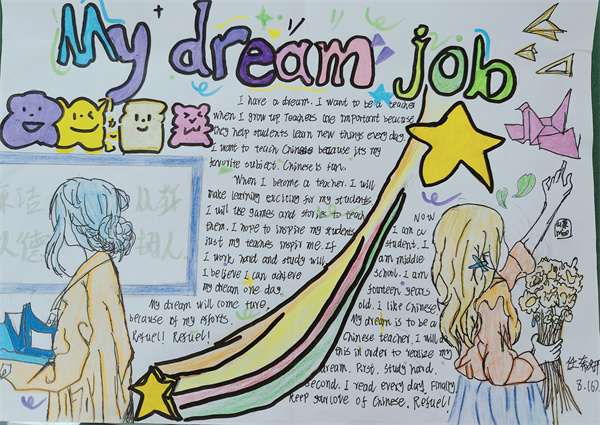 My dream job
I have a dream. I want to be a teacher
when I grow up Teachers are important because
they help students learn new things every day.
I want to teach Chinese because its my
favorite subject. Chinese is fun.
When I become a teacher. I will
make learning exciting for my students.
I will use games and stories to teach
them. I hope to inspire my students
just my teaches inspir me. If
I work hard and study will
I believe I can achieve
my dream one day.
My dream will come ture.
because of my efforts.
Refuel! Refuel!
Now
I am a
student. I
am middle
school. I am
fourteen years
old. I like Chinese
My dream is to be a
Chinese teacher, I will do
this in order to realize my
dream. First, study hard.
Second. I read every day. Finally
keep our love of Chinese. Refuel!
洁 从教
以德 人
8.(6)